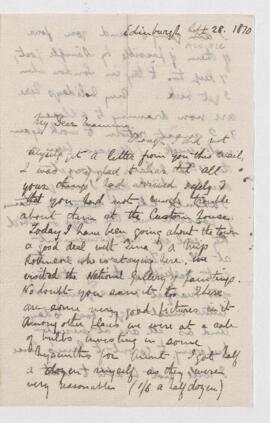 Edinburgh Sept 28. 1870
My Dear Mamma
Though I did not
myself get a letter from you this week,
I was very glad to hear that all
your things had arrived safely &
that you had not much trouble
about them at the Custom House.
Today I have been going about the town
a good deal with Tina & a Miss
Robinson who is staying here. We
visited the National Gallery paintings.
No doubt you saw it too. There
are some very good pictures in it
Among other places we were at a sale
of bulbs investing in some
Hyacinths for Aunt. I got half
a dozen myself as they were
very reasonable (1/6 a half dozen)